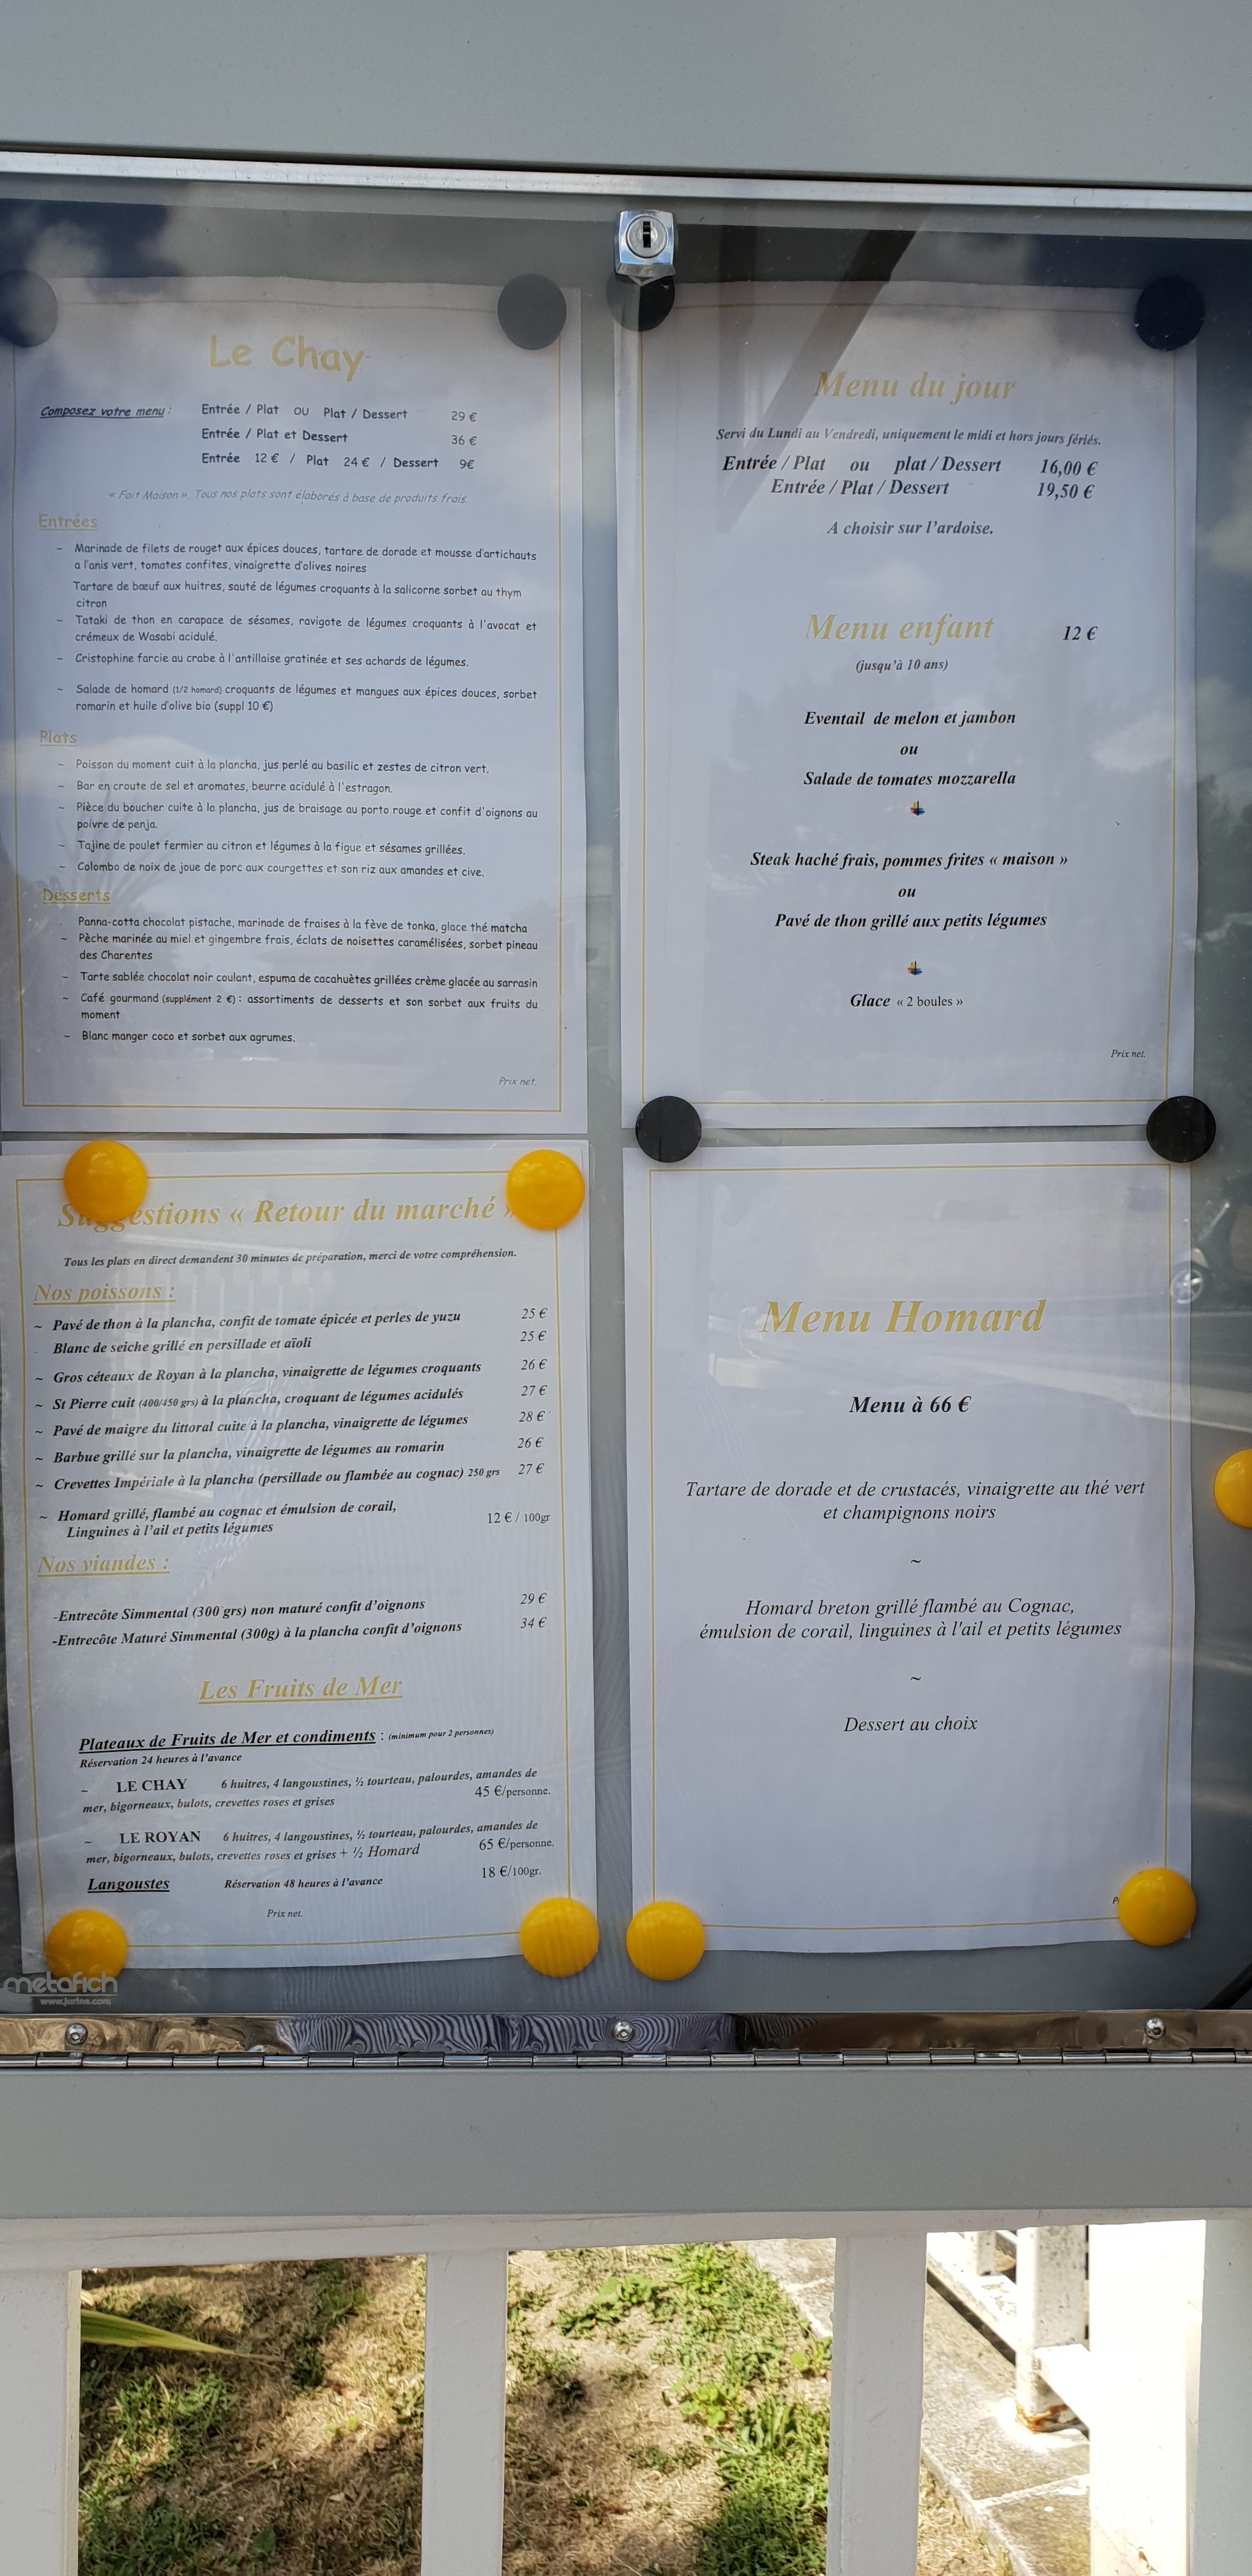 Le Chay
Composez votre menu : Entrée / Plat OU Plat / Dessert 29 €
Entrée / Plat et Dessert 36 €
Entrée 12 € / Plat 24 € / Dessert 9€
« Fait Maison ». Tous nos plats sont élaborés à base de produits frais
Entrées
~ Marinade de filets de rouget aux épices douces, tartare de dorade et mousse d'artichauts
a l'anis vert, tomates confites, vinaigrette d'olives noires
Tartare de bœuf aux huitres, sauté de légumes croquants à la salicorne sorbet au thym
citron
~ Tataki de thon en carapace de sésames, ravigote de légumes croquants à l'avocat et
crémeux de Wasabi acidulé.
~ Cristophine farcie au crabe à l'antillaise gratinée et ses achards de légumes.
~ Salade de homard (1/2 homard) croquants de légumes et mangues aux épices douces, sorbet
romarin et huile d'olive bio (suppl 10 €)
Plats
~ Poisson du moment cuit à la plancha, jus perlé au basilic et zestes de citron vert.
~ Bar en croute de sel et aromates, beurre acidulé à l'estragon.
~ Pièce du boucher cuite à la plancha, jus de braisage au porto rouge et confit d'oignons au
poivre de penja.
~ Tajine de poulet fermier au citron et légumes à la figue et sésames grillées.
~ Colombo de noix de joue de porc aux courgettes et son riz aux amandes et cive.
Desserts
Panna-cotta chocolat pistache, marinade de fraises à la fève de tonka, glace thé matcha
~ Pèche marinée au miel et gingembre frais, éclats de noisettes caramélisées, sorbet pineau
des Charentes
~ Tarte sablée chocolat noir coulant, espuma de cacahuètes grillées crème glacée au sarrasin
~ Café gourmand (supplément 2 €) : assortiments de desserts et son sorbet aux fruits du
moment
~ Blanc manger coco et sorbet aux agrumes.
Prix net.
Menu du jour
Servi du Lundi au Vendredi, uniquement le midi et hors jours fériés.
Entrée / Plat ou plat / Dessert 16,00 €
Entrée / Plat / Dessert 19,50 €
A choisir sur l'ardoise.
Menu enfant 12 €
(jusqu'à 10 ans)
Eventail de melon et jambon
ou
Salade de tomates mozzarella
Steak haché frais, pommes frites « maison »
ou
Pavé de thon grillé aux petits légumes
Glace « 2 boules »
Prix net.
Suggestions « Retour du marché »
Tous les plats en direct demandent 30 minutes de préparation, merci de votre compréhension.
Nos poissons :
~ Pavé de thon à la plancha, confit de tomate épicée et perles de yuzu 25 €
Blanc de seiche grillé en persillade et aïoli 25 €
~ Gros céteaux de Royan à la plancha, vinaigrette de légumes croquants 26 €
~ St Pierre cuit (400/450 grs) à la plancha, croquant de légumes acidulés 27 €
~ Pavé de maigre du littoral cuite à la plancha, vinaigrette de légumes 28 €
~ Barbue grillé sur la plancha, vinaigrette de légumes au romarin 26 €
~ Crevettes Impériale à la plancha (persillade ou flambée au cognac) 250 grs 27 €
~ Homard grillé, flambé au cognac et émulsion de corail,
Linguines à l'ail et petits légumes 12 € / 100gr
Nos viandes :
-Entrecôte Simmental (300 grs) non maturé confit d'oignons 29 €
-Entrecôte Maturé Simmental (300g) à la plancha confit d'oignons 34 €
Les Fruits de Mer
Plateaux de Fruits de Mer et condiments : (minimum pour 2 personnes)
Réservation 24 heures à l'avance
~ LE CHAY 6 huitres, 4 langoustines, ½ tourteau, palourdes, amandes de
mer, bigorneaux, bulots, crevettes roses et grises 45 €/personne.
~ LE ROYAN 6 huitres, 4 langoustines, ½ tourteau, palourdes, amandes de
mer, bigorneaux, bulots, crevettes roses et grises + ½ Homard 65 €/personne.
Langoustes Réservation 48 heures à l'avance 18 €/100gr.
Prix net.
Menu Homard
Menu à 66 €
Tartare de dorade et de crustacés, vinaigrette au thé vert
et champignons noirs
~
Homard breton grillé flambé au Cognac,
émulsion de corail, linguines à l'ail et petits légumes
~
Dessert au choix
metafich
www.jurine.com